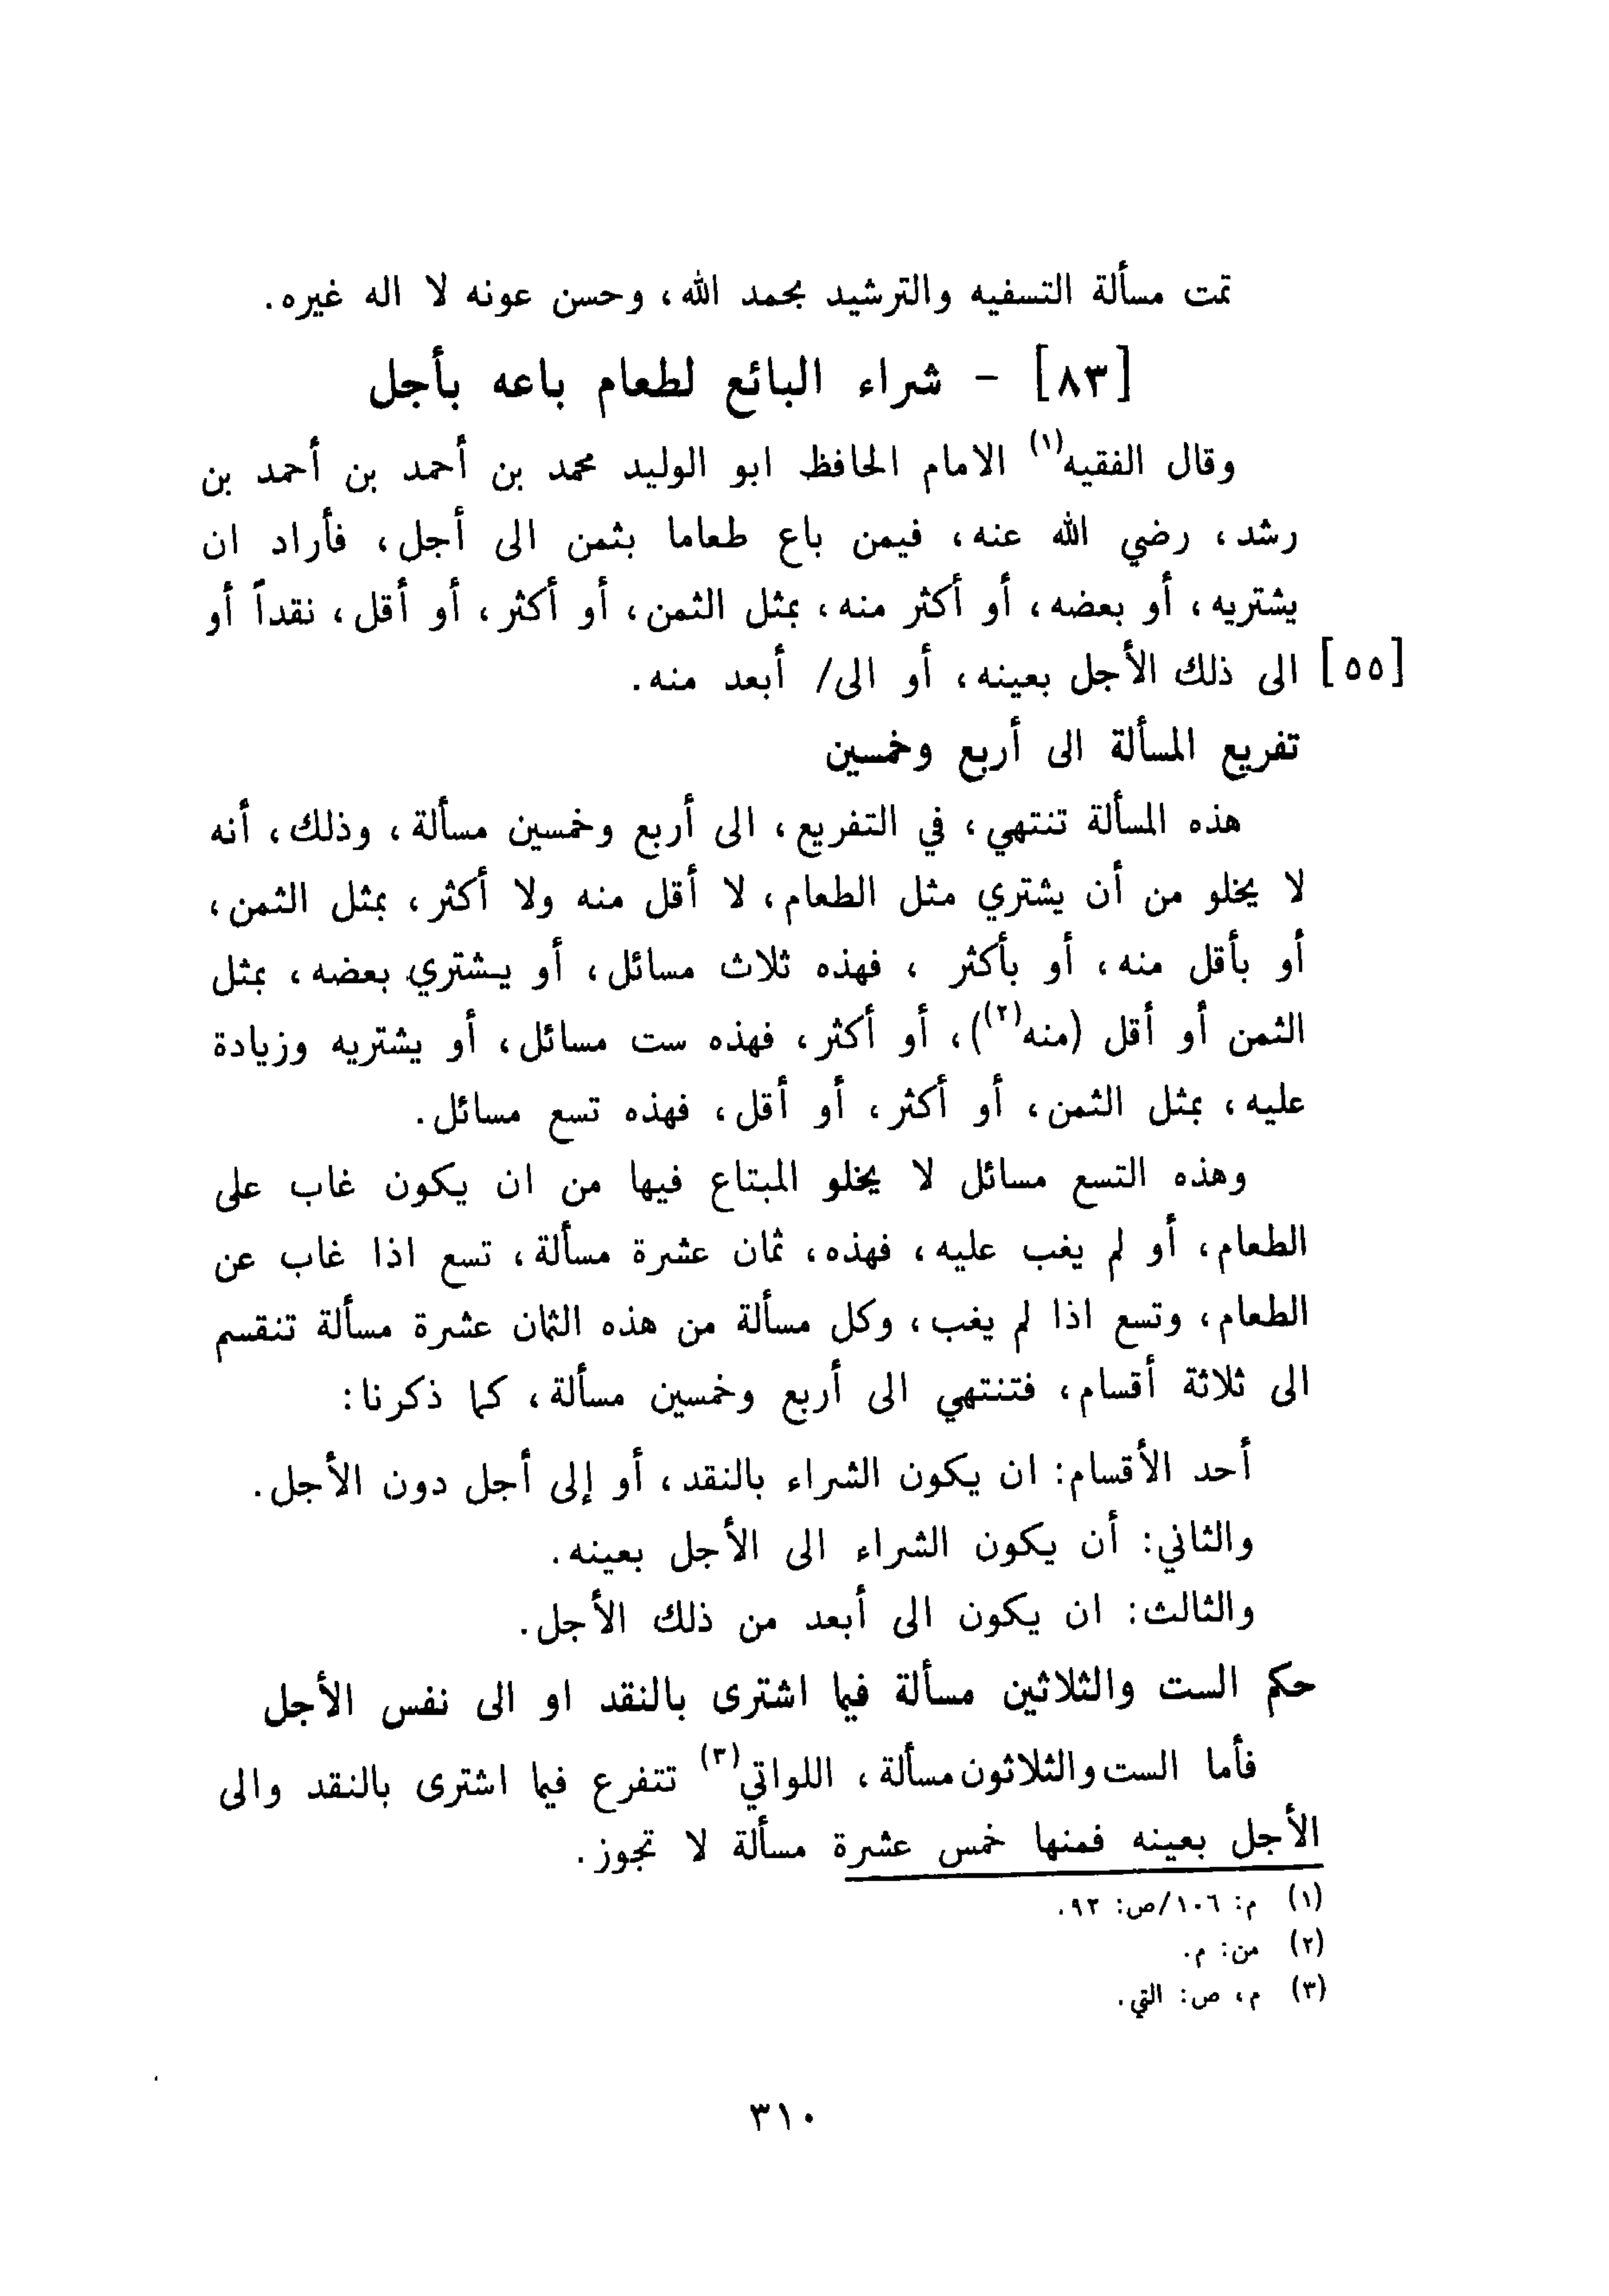 تمت مسألة التسفيه والترشيد بحمد الله، وحسن عونه لا اله غيره.
[٨٣] - شراء البائع لطعام باعه بأجل
وقال الفقيه(١) الامام الحافظ ابو الوليد محمد بن أحمد بن أحمد بن
رشد، رضي الله عنه، فيمن باع طعاما بثمن الى أجل، فأراد ان
يشتريه، أو بعضه، أو أكثر منه، بمثل الثمن، أو أكثر، أو أقل، نقداً أو
[٥٥] الى ذلك الأجل بعينه، أو الى/ أبعد منه.
تفريع المسألة الى أربع وخمسين
هذه المسألة تنتهي، في التفريع، الى أربع وخمسين مسألة، وذلك، أنه
لا يخلو من أن يشتري مثل الطعام، لا أقل منه ولا أكثر، بمثل الثمن،
أو بأقل منه، أو بأكثر ، فهذه ثلاث مسائل، أو يشتري بعضه، بمثل
الثمن أو أقل (منه(٢))، أو أكثر، فهذه ست مسائل، أو يشتريه وزيادة
عليه، بمثل الثمن، أو أكثر، أو أقل، فهذه تسع مسائل.
وهذه التسع مسائل لا يخلو المبتاع فيها من ان يكون غاب على
الطعام، أو لم يغب عليه، فهذه، ثمان عشرة مسألة، تسع اذا غاب عن
الطعام، وتسع اذا لم يغب، وكل مسألة من هذه الثمان عشرة مسألة تنقسم
الى ثلاثة أقسام، فتنتهي الى أربع وخمسين مسألة، كما ذكرنا:
أحد الأقسام: ان يكون الشراء بالنقد، أو إلى أجل دون الأجل.
والثاني: أن يكون الشراء الى الأجل بعينه.
والثالث: ان يكون الى أبعد من ذلك الأجل.
حكم الست والثلاثين مسألة فيما اشترى بالنقد او الى نفس الأجل
فأما الست والثلاثون مسألة، اللواتي(٣) تتفرع فيما اشترى بالنقد والى
الأجل بعينه فمنها خمس عشرة مسألة لا تجوز.
(١) م: ١٠٦/ص: ٩٢.
(٢) من: م.
(٣) م، ص: التي.
٣١٠